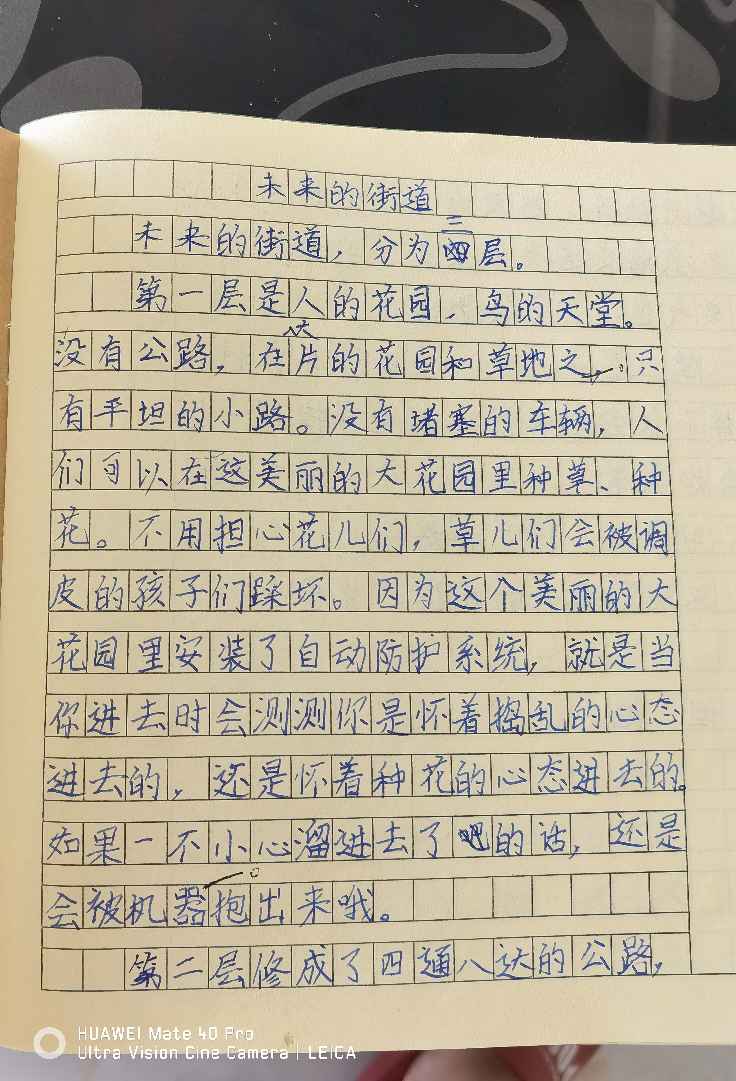 未来的街道
未来的街道，分为三层。
第一层是人的花园，鸟的天堂。
没有公路，在大片的花园和草地之，只
有平坦的小路。没有堵塞的车辆，人
们可以在这美丽的大花园里种草、种
花。不用担心花儿们，草儿们会被调
皮的孩子们踩坏。因为这个美丽的大
花园里安装了自动防护系统，就是当
你进去时会测测你是怀着捣乱的心态
进去的，还是怀着种花的心态进去的。
如果一不小心溜进去了吧的话，还是
会被机器抱出来哦。
第二层修成了四通八达的公路，
HUAWEI Mate 40 Pro
Ultra Vision Cine Camera | LEICA